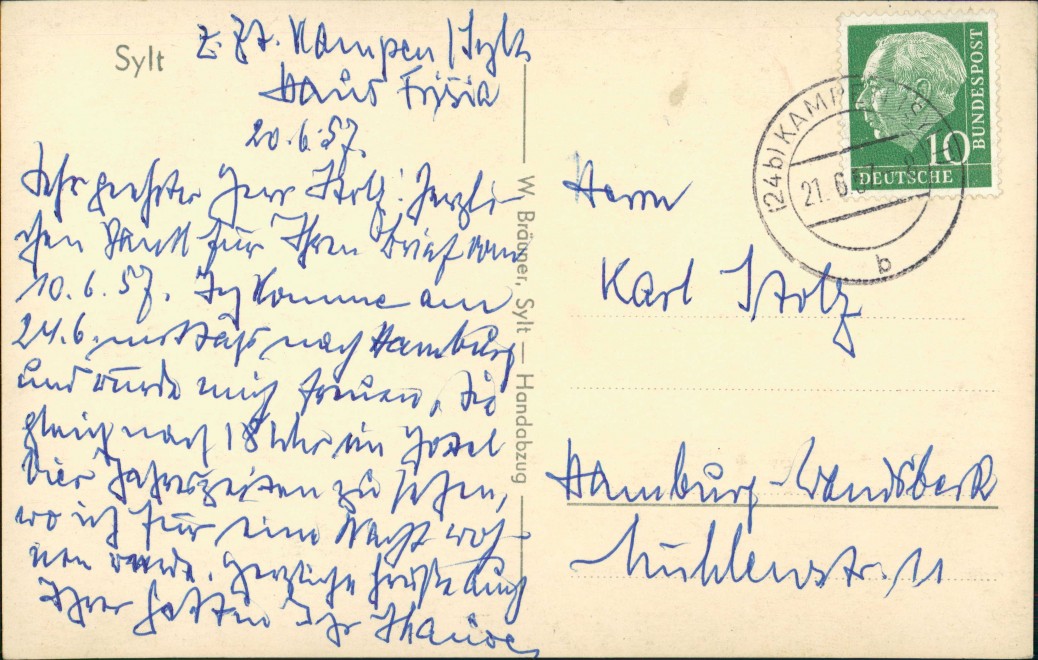 Sylt
z. Zt. Kampen/Sylt
Haus Frisia
20.6.57.
Sehr geehrter Herr Stolz! Herzli-
chen Dank für Ihren Brief vom
10.6.57. Ich komme am
24.6. mittags nach Hamburg
und würde mich freuen, Sie
gleich nach 18 Uhr im Hotel
Vier Jahreszeiten zu sehen,
wo ich für eine Nacht woh-
nen werde. Herzliche Grüße auch
Ihrer Gattin Ihr
W. Bräuner, Sylt — Handabzug
DEUTSCHE
BUNDESPOST
10
(24b) KAMPEN
21. 6. 57
b
Herrn
Karl Stolz
Hamburg-Wandsbeck
Mühlenstr. 11